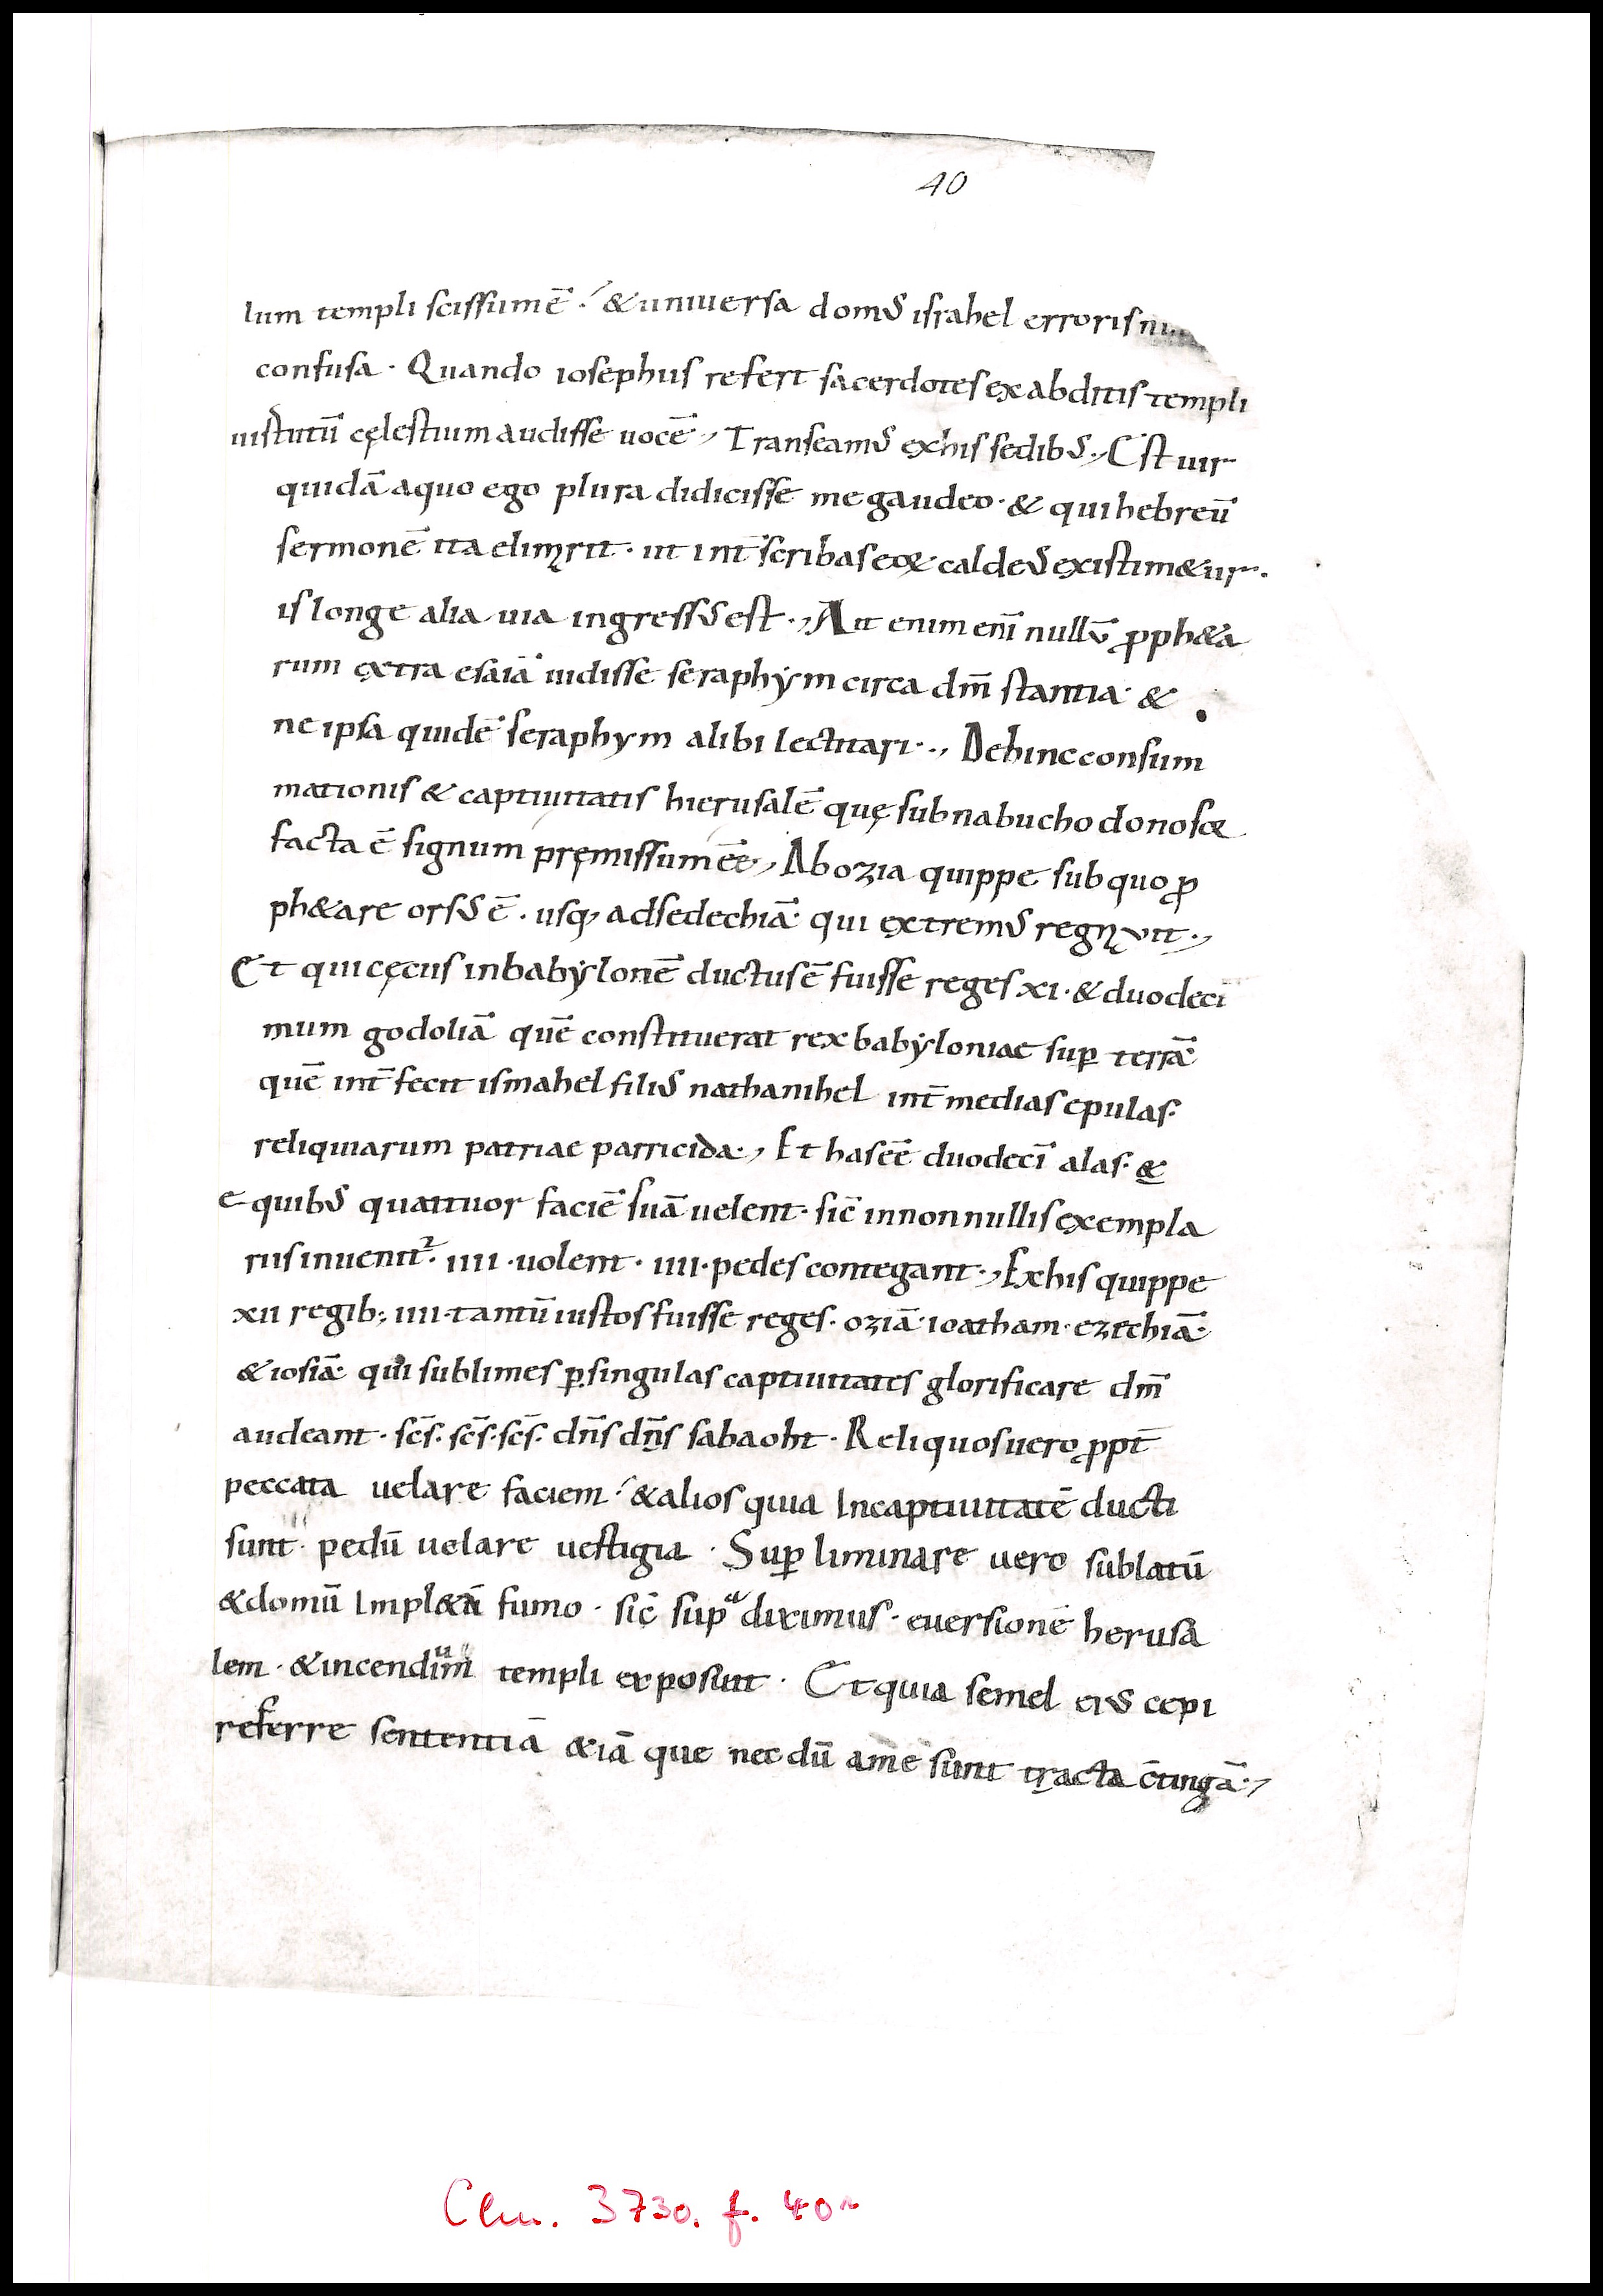 40
lum templi scissum ē· & uniuersa dom᷒ israhel erroris
confusa · Quando iosephus refert sacerdotes ex abditis templi
uirtutū cęlestium audisse uocē·, Transeam᷒ ex his sedib᷒·, Est uir
quidā a quo ego plura didicisse me gaudeo· & qui hebreū
sermonē ita elimarit · ut int̄ scribas eoꝝ· calde᷒ existim&ur·
is longe alia uia ingress᷒ est·, Ait enim enī null᷒ ꝓph&a
rum extra esaiā uidisse seraphym circa dm̄ stantia· &
ne ipsa quidē seraphym alibi lectitari··, Dehinc consum
mationis & captiuitatis hierusalē quę sub nabuchodonosoꝝ
facta ē signum pręmissum ēē·, Ab ozia quippe sub quo ꝓ
ph&are ors᷒ ē · usq; ad sedechiā· qui extrem᷒ regnauit·,
Et qui cęcus in babylonē ductus ē fuisse reges xi· & duodeci
mum godoliā quē constituerat rex babyloniae suꝑ terrā·
quē int̄fecit ismahel fili᷒ nathanihel int̄ medias epulas·
reliquiarum patriae parricida·, Et has ēē duodecī alas· &
e quib᷒ quattuor faciē suā uelent· sic̄ in nonnullis exempla
riis inuenit᷑· IIII · uolent · IIII· pedes contegant·, Ex his quippe
xii regib; IIII· tantū iustos fuisse reges· oziā· ioatham· ezechiā·
& iosiā· qui sublimes ꝑ singulas captiuitates glorificare dm̄
audeant · scs̄· scs̄· scs̄· dn̄s dn̄s sabaoht · Reliquos uero ꝓpt̄
peccata uelare faciem· & alios quia In captiuitatē ducti
sunt· pedū uelare uestigia · Suꝑ liminare uero sublatū
& domū Impl&ā fumo · sic̄ supᵃ diximus · euersionē herusa
lem · & incendium templi exposuit · Et quia semel ei᷒ cepi
referre sententiā &iā que nec dū a me sunt tracta c̄tingā·,
Clm. 3730. f. 40r